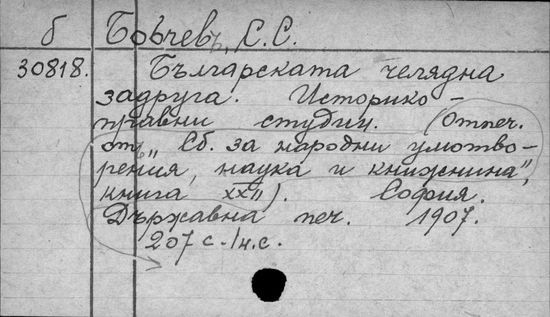 б Бобчевъ, С.С.
30818. Българската челядна
задруга. Историко-
правни студии. (Отпеч.
отъ „Сб. за народни умотво-
рения, наука и книжнина",
книга XXII). София.
Държавна печ. 1907.
207 с. /н.с.